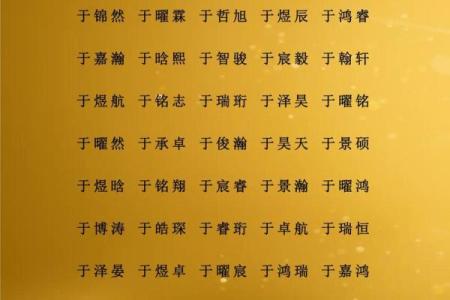 于锦然 于曜霖 于哲旭 于煜辰 于鸿睿
于嘉瀚 于晗熙 于智骏 于宸毅 于翰轩
于煜航 于铭志 于瑞珩 于泽昊 于曜铭
于曜然 于承卓 于俊瀚 于昊天 于景硕
于煜晗 于铭翔 于宸睿 于景瀚 于曜鸿
于博涛 于皓琛 于睿珩 于卓航 于瑞恒
于泽晏 于煜卓 于曜宸 于鸿瑞 于嘉鸿